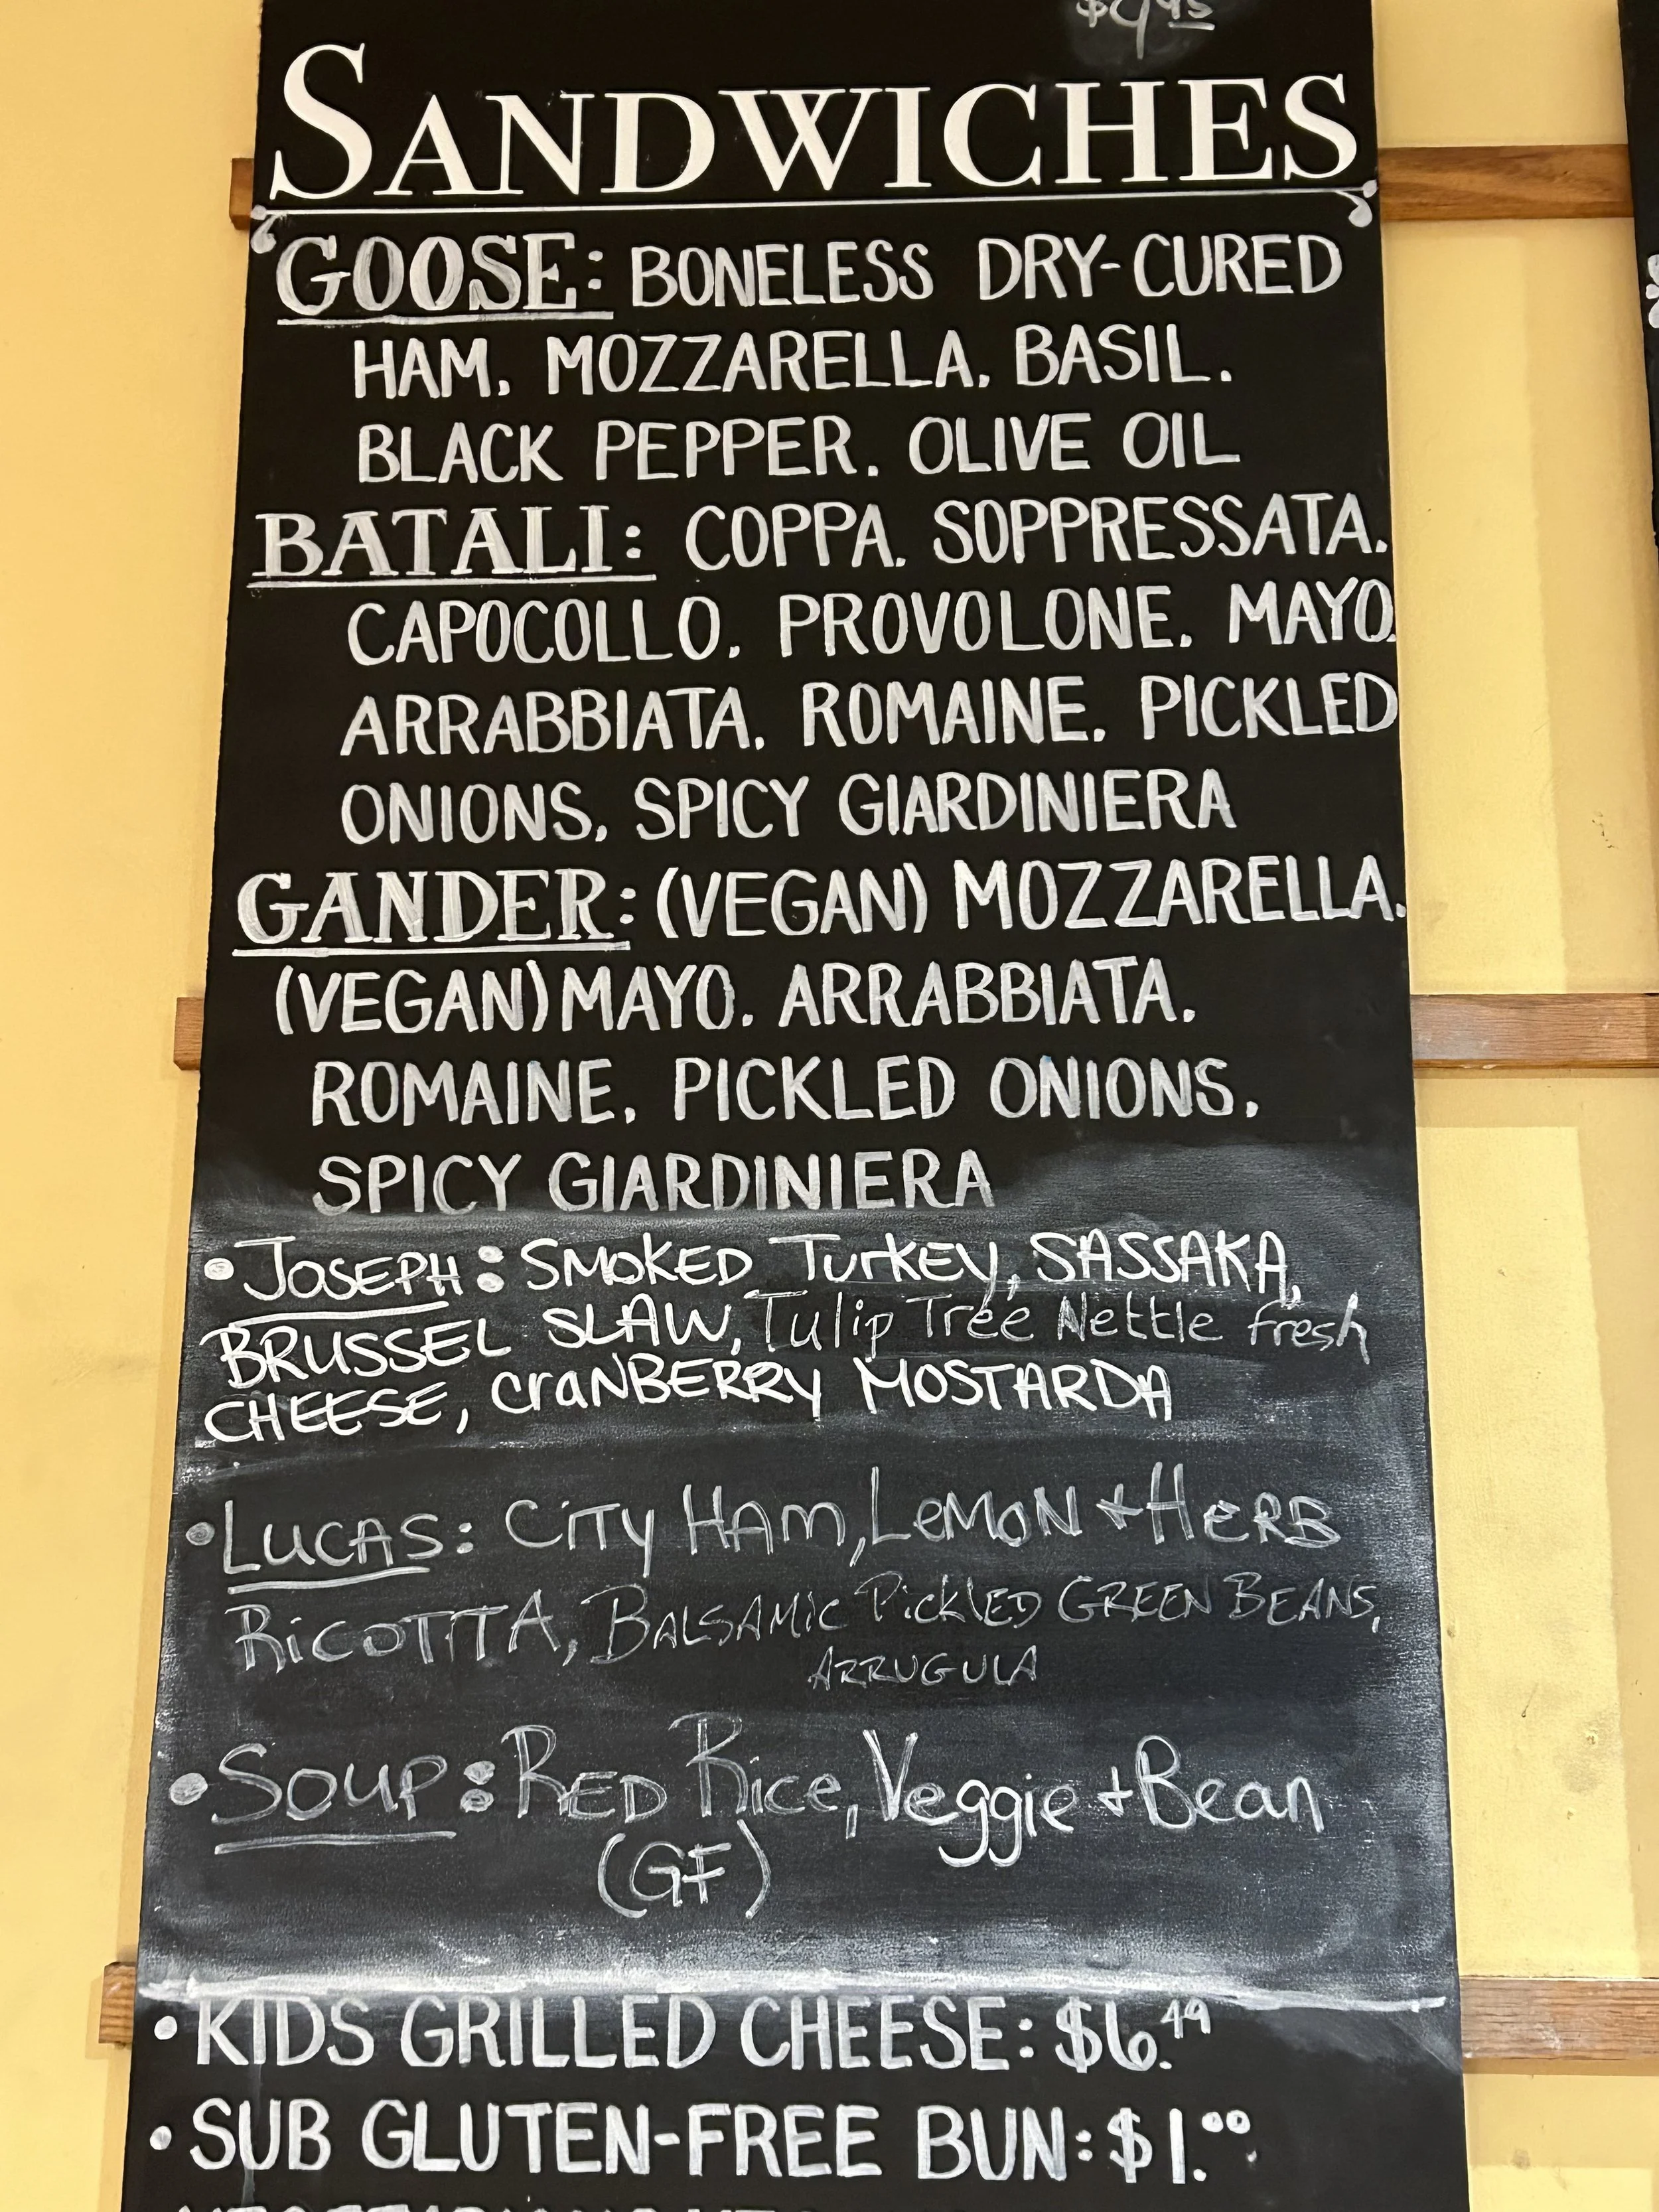 SANDWICHES
GOOSE: BONELESS DRY-CURED
HAM, MOZZARELLA, BASIL,
BLACK PEPPER, OLIVE OIL
BATALI: COPPA, SOPPRESSATA,
CAPOCOLLO, PROVOLONE, MAYO,
ARRABBIATA, ROMAINE, PICKLED
ONIONS, SPICY GIARDINIERA
GANDER: (VEGAN) MOZZARELLA,
(VEGAN) MAYO, ARRABBIATA,
ROMAINE, PICKLED ONIONS,
SPICY GIARDINIERA
• JOSEPH: SMOKED TurKEY, SASSAKA,
BRUSSEL SLAW, Tulip Tree Nettle fresh
CHEESE, CraNBERRY MOSTARDA
• LUCAS: CiTY HAm, LeMON + HERB
RiCOTTA, BALSAMiC PickLED GREEN BEANS,
ARRUGULA
• SOUP: RED Rice, Veggie + Bean
(GF)
• KIDS GRILLED CHEESE: $6.49
• SUB GLUTEN-FREE BUN: $1.00